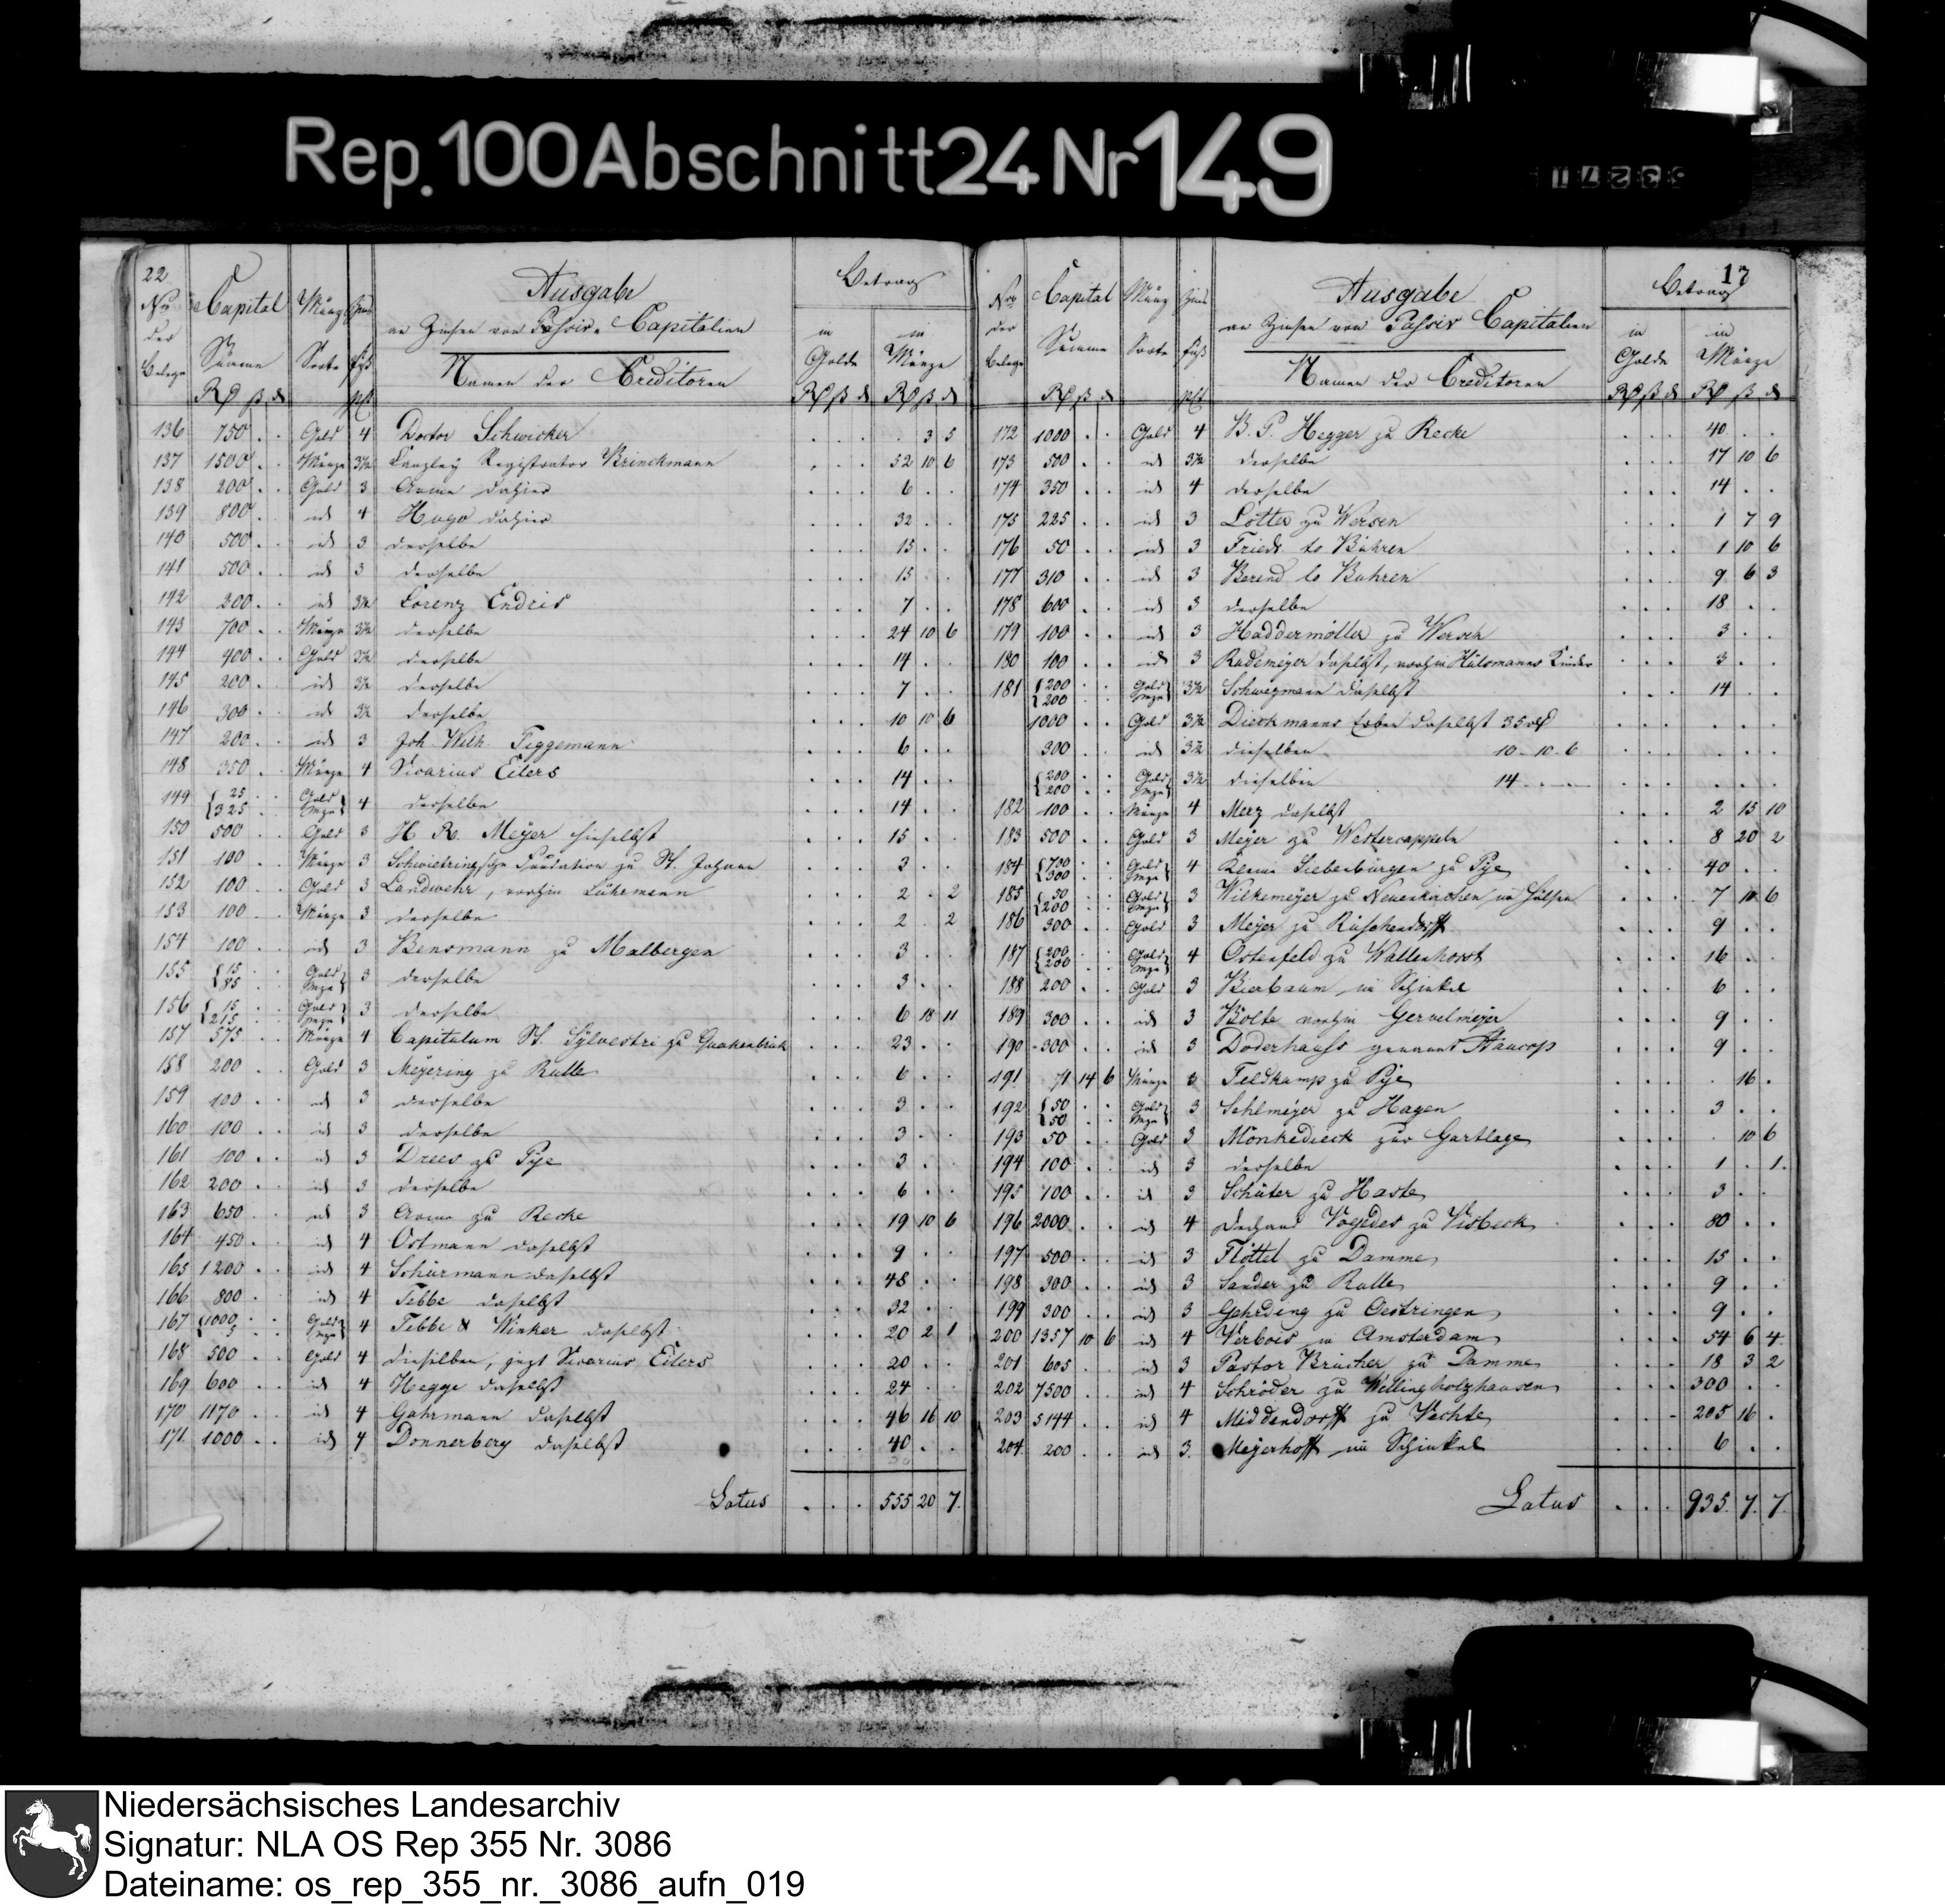 Rep. 100 Abschnitt 24 Nr 149
22
No der Belege | Capital Summe | Münz Sorte | Zins fuß | Ausgabe an Zinsen von Passiv Capitalien | Betrag
Namen der Creditoren | in Golde | in Münze
136 750 . . Gold 4 Doctor Schwicker . . . . 3 5
137 1500 . . Münze 3½ Canzley Registrator Brinckmann . . . 52 10 6
138 200 . . Gold 3 Arme dahier . . . 6 . .
139 800 . . id 4 Hugo dahier . . . 32 . .
140 500 . . id 3 derselbe . . . 15 . .
141 500 . . id 3 derselbe . . . 15 . .
142 200 . . id 3½ Lorenz Endris . . . 7 . .
143 700 . . Münze 3½ derselbe . . . 24 10 6
144 400 . . Gold 3½ derselbe . . . 14 . .
145 200 . . id 3½ derselbe . . . 7 . .
146 300 . . id 3½ derselbe . . . 10 10 6
147 200 . . id 3 Joh Wilh. Tiggemann . . . 6 . .
148 350 . . Münze 4 Vicarius Eilers . . . 14 . .
149 { 25 325 . . Gold Mze } 4 derselbe . . . 14 . .
150 500 . . Gold 3 H. R. Meÿer hieselbst . . . 15 . .
151 100 . . Münze 3 Schwietringsche Fundation zu St. Johann . . . 3 . .
152 100 . . Gold 3 Landwehr, vorhin Lührmann . . . 2 . 2
153 100 . . Münze 3 derselbe . . . 2 . 2
154 100 . . id 3 Bensmann zu Malbergen . . . 3 . .
155 { 15 85 . . Gold Mze } 3 derselbe . . . 3 . .
156 { 15 215 . . Gold Mze } 3 derselbe . . . 6 18 11
157 575 . . Münze 4 Capitulum St. Sÿlvestri zu Quakenbrück . . . 23 . .
158 200 . . Gold 3 Meÿering zu Rulle . . . 6 . .
159 100 . . id 3 derselbe . . . 3 . .
160 100 . . id 3 derselbe . . . 3 . .
161 100 . . id 3 Drees zu Pÿe . . . 3 . .
162 200 . . id 3 derselbe . . . 6 . .
163 650 . . id 3 Arme zu Recke . . . 19 10 6
164 450 . . id 4 Ostmann daselbst . . . 9 . .
165 1200 . . id 4 Schürmann daselbst . . . 48 . .
166 800 . . id 4 Tebbe daselbst . . . 32 . .
167 { 1000 5 . . Gold Mze } 4 Tebbe & Winker daselbst . . . 20 2 1
168 500 . . Gold 4 dieselben, jetzt Vicarius Eilers . . . 20 . .
169 600 . . id 4 Hegge daselbst . . . 24 . .
170 1170 . . id 4 Gahrmann daselbst . . . 46 16 10
171 1000 . . id 4 Donnerberg daselbst . . . 40 . .
Latus . . . 555 20 7.
17
No der Belege | Capital Summe | Münz Sorte | Zins fuß | Ausgabe an Zinsen von Passiv Capitalien | Betrag
Namen der Creditoren | in Golde | in Münze
172 1000 . . Gold 4 B. P. Hegger zu Recke . . . 40 . .
173 500 . . id 3½ derselbe . . . 17 10 6
174 350 . . id 4 derselbe . . . 14 . .
175 225 . . id 3 Lotter zu Wersen . . . 1 7 9
176 50 . . id 3 Friedr. to Bühren . . . 1 10 6
177 310 . . id 3 Berend to Buhren . . . 9 6 3
178 600 . . id 3 derselbe . . . 18 . .
179 100 . . id 3 Haddermöller zu Wersen . . . 3 . .
180 100 . . id 3 Rademeÿer daselbst, vorhin Hülsmanns Kinder . . . 3 . .
181 { 200 200 . . Gold Mze } 3½ Schwegmann daselbst . . . 14 . .
1000 . . Gold 3½ Dieckmanns Erben daselbst 35 rℓ . . . . . .
300 . . id 3½ dieselben 10-10-6 . . . . . .
{ 200 200 . . Gold Mze } 3½ dieselben 14 . . . . . .
182 100 . . Münze 4 Merz daselbst . . . 2 15 10
183 500 . . Gold 3 Meÿer zu Westercappeln . . . 8 20 2
184 { 700 300 . . Gold Mze } 4 Siebenbürgen zu Pÿe . . . 40 . .
185 { 50 200 . . Gold Mze } 3 Wilkemeÿer zu Neuenkirchen in Hülsen . . . 7 10 6
186 300 . . Gold 3 Meÿer zu Rüschendorff . . . 9 . .
187 { 200 200 . . Gold Mze } 4 Ostenfeld zu Wallenhorst . . . 16 . .
188 200 . . Gold 3 Bierbaum im Schinkel . . . 6 . .
189 300 . . id 3 Bolte vorhin Gervelmeÿer . . . 9 . .
190 300 . . id 3 Doderhauß genannt Haucap . . . 9 . .
191 71 14 6 Münze 3 Feldkamp zu Pÿe . . . . 16 .
192 { 50 50 . . Gold Mze } 3 Sehlmeÿer zu Hagen . . . 3 . .
193 50 . . Gold 3 Mönkedieck zur Gartlage . . . . 10 6
194 100 . . id 3 derselbe . . . 1 . 1.
195 100 . . id 3 Schüter zu Haste . . . 3 . .
196 2000 . . id 4 Dechant Vogedes zu Visbeck . . . 80 . .
197 500 . . id 3 Flöttel zu Damme . . . 15 . .
198 300 . . id 3 Sander zu Rulle . . . 9 . .
199 300 . . id 3 Gehrding zu Oestringen . . . 9 . .
200 1357 10 6 id 4 Verbois in Amsterdam . . . 54 6 4
201 605 . . id 3 Pastor Brücher zu Damme . . . 18 3 2
202 7500 . . id 4 Schröder zu Wellingholzhausen . . . 300 . .
203 5144 . . id 4 Middendorff zu Vechte . . . 205 16 .
204 200 . . id 3. Meÿerhoff im Schinkel . . . 6 . .
Latus . . . 935. 7. 7.
Niedersächsisches Landesarchiv
Signatur: NLA OS Rep 355 Nr. 3086
Dateiname: os_rep_355_nr._3086_aufn_019